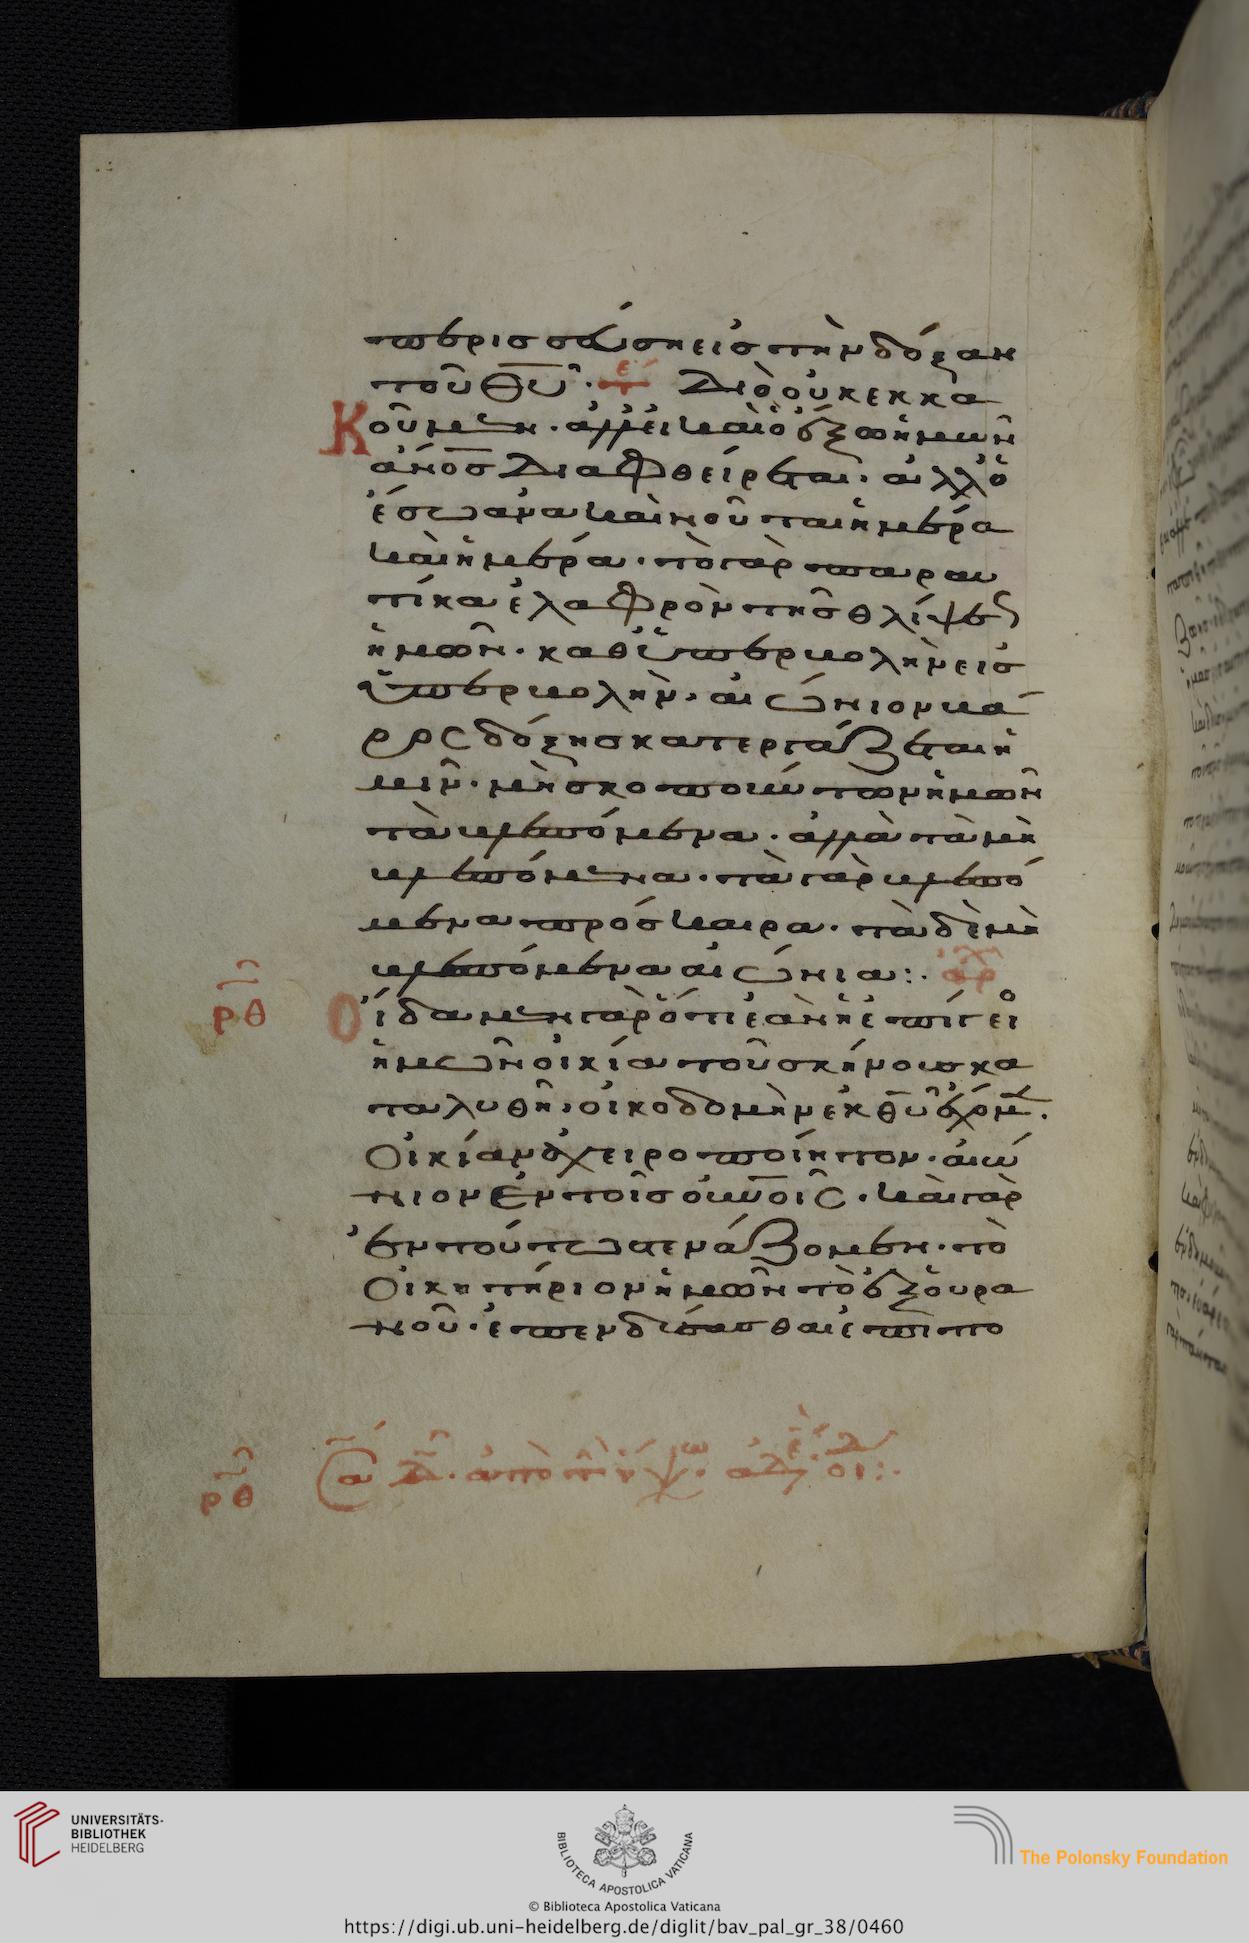 περισσεύσῃ εἰς τὴν δόξαν
τοῦ θ̅υ̅. τε Διὸ οὐκ ἐκκα
Κοῦμεν. ἀλλ' εἰ καὶ ὁ ἔξω ἡμῶν
ἄν̅ο̅ς διαφθείρεται. ἀλλ' ὁ
ἔσωθ ἀνακαινοῦται ἡμέρα
καὶ ἡμέρα. τὸ γὰρ παραυ
τίκα ἐλαφρὸν τῆς θλίψεως
ἡμῶν. καθ' ὑπερβολὴν εἰς
ὑπερβολὴν. αἰώνιον βά
ρος δόξης κατεργάζεται ἡ
μῖν. μὴ σκοπούντων ἡμῶν
τὰ βλεπόμενα. ἀλλὰ τὰ μὴ
βλεπόμενα. τὰ γὰρ βλεπό
μενα πρόσκαιρα. τὰ δὲ μὴ
βλεπόμενα αἰώνια:. ἀρχ
ρθ Οἴδαμεν γὰρ ὅτι ἐὰν ἡ ἐπίγειο
ἡμῶν οἰκία τοῦ σκήνους κα
ταλυθῇ, οἰκοδομὴν ἐκ θ̅υ̅ ἔχομεν.
Οἰκίαν ἀχειροποίητον. αἰώ
νιον ἐν τοῖς οὐν̅οῖς. καὶ γὰρ
ἐν τούτω στενάζομεν. τὸ
Οἰκητήριον ἡμῶν τὸ ἐξ οὐρα
νοῦ. ἐπενδύσασθαι ἐπιπο
ρθ
UNIVERSITÄTS-
BIBLIOTHEK
HEIDELBERG
BIBLIOTECA APOSTOLICA VATICANA
The Polonsky Foundation
© Biblioteca Apostolica Vaticana
https://digi.ub.uni-heidelberg.de/diglit/bav_pal_gr_38/0460